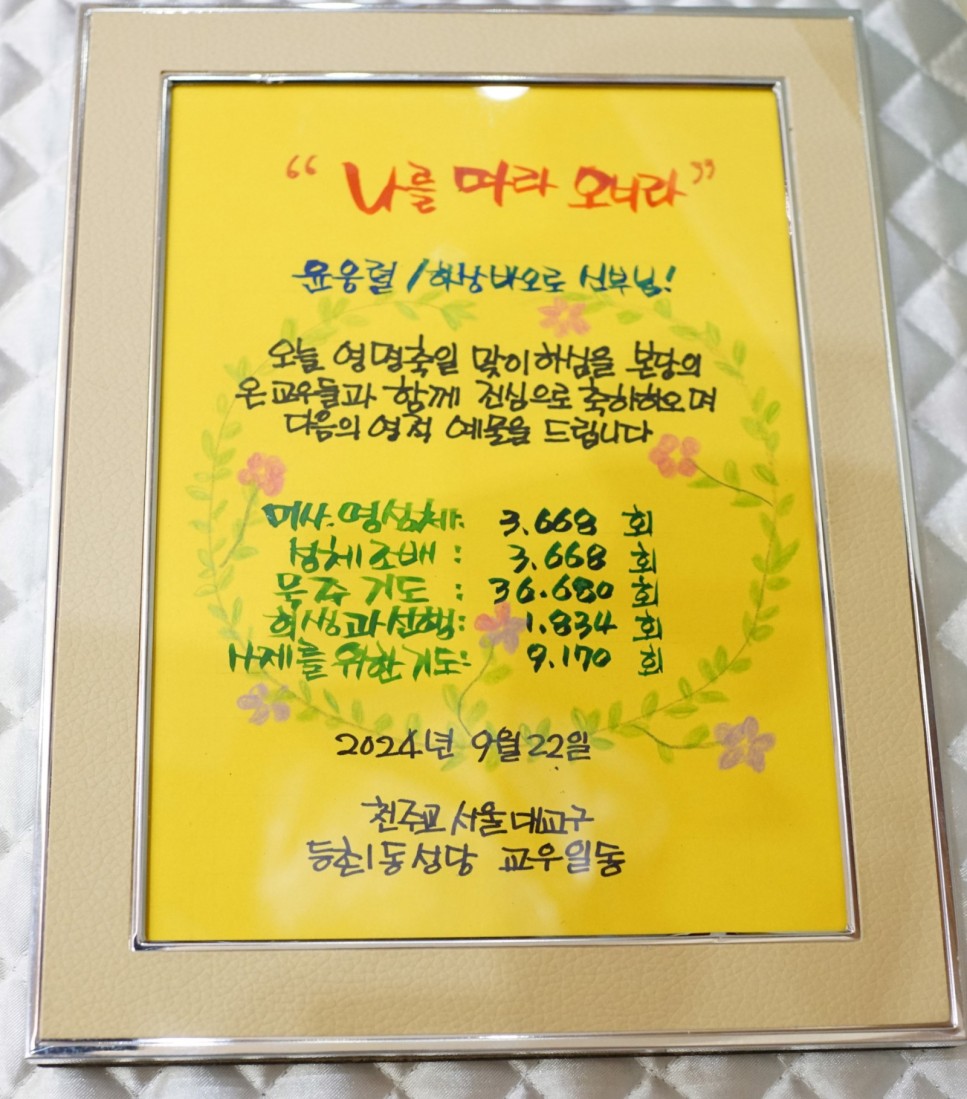 “나를 따라 오너라”
윤응렬/하상바오로 신부님!
오늘 영명축일 맞이하심을 본당의
온 교우들과 함께 진심으로 축하하오며
다음의 영적 예물을 드립니다
미사.영성체: 3.668 회
성체조배: 3.668 회
묵주기도: 36.680 회
희생과선행: 1.834 회
사제를위한기도: 9.170 회
2024년 9월 22일
천주교 서울대교구
등촌1동성당 교우일동